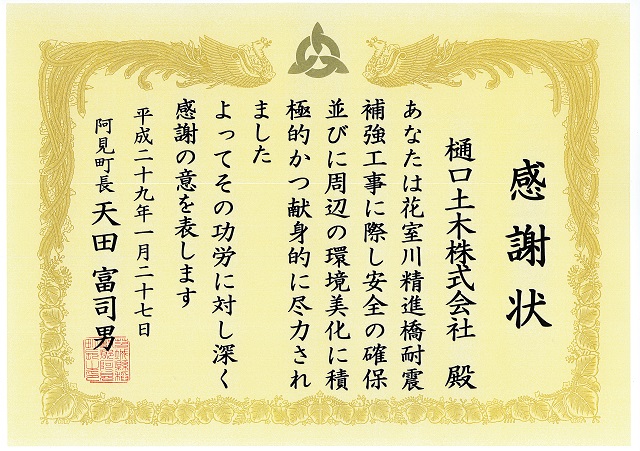 感謝状
樋口土木株式会社 殿
あなたは花室川精進橋耐震
補強工事に際し安全の確保
並びに周辺の環境美化に積
極的かつ献身的に尽力され
ました
よってその功労に対し深く
感謝の意を表します
平成二十九年一月二十七日
阿見町長 天田富司男